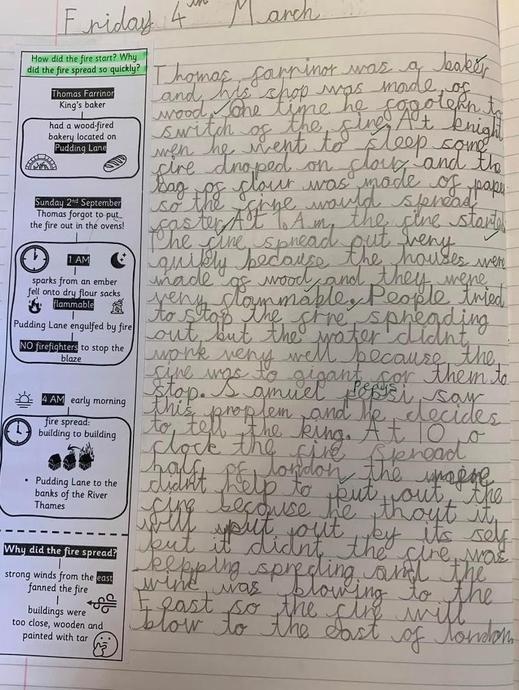 Friday 4th March
How did the fire start? Why
did the fire spread so quickly?
Thomas Farrinor
King's baker
had a wood-fired
bakery located on
Pudding Lane
Sunday 2nd September
Thomas forgot to put
the fire out in the ovens!
1 AM
sparks from an ember
fell onto dry flour sacks
flammable
Pudding Lane engulfed by fire
NO firefighters to stop the
blaze
4 AM early morning
fire spread:
building to building
• Pudding Lane to the
banks of the River
Thames
Why did the fire spread?
strong winds from the east
fanned the fire
buildings were
too close, wooden and
painted with tar
Thomas farrinor was a baker
and his shop was made of
wood. one time he fogotern to
switch of the fire. At knight
wen he went to sleep some
fire droped on flour, and the
bag of flour was made of paper
so the fire would spread
faster. At 1 Am the fire started
The fire spread out very
quikly because the houses were
made of wood and they were
very flammable. People tried
to stop the fire spreading
out, but the water didnt
work very well because the
fire was to gigant for them to
stop. Samuel Pepys say
this problem and he decides
to tell the king. At 10 o
clock the fire spread
half of london the
didnt help to put out the
fire because he thout it
will put out by its self
but it didnt the fire was
kepping spreding and the
wind was blowing to the
east so the fire will
blow to the east of london